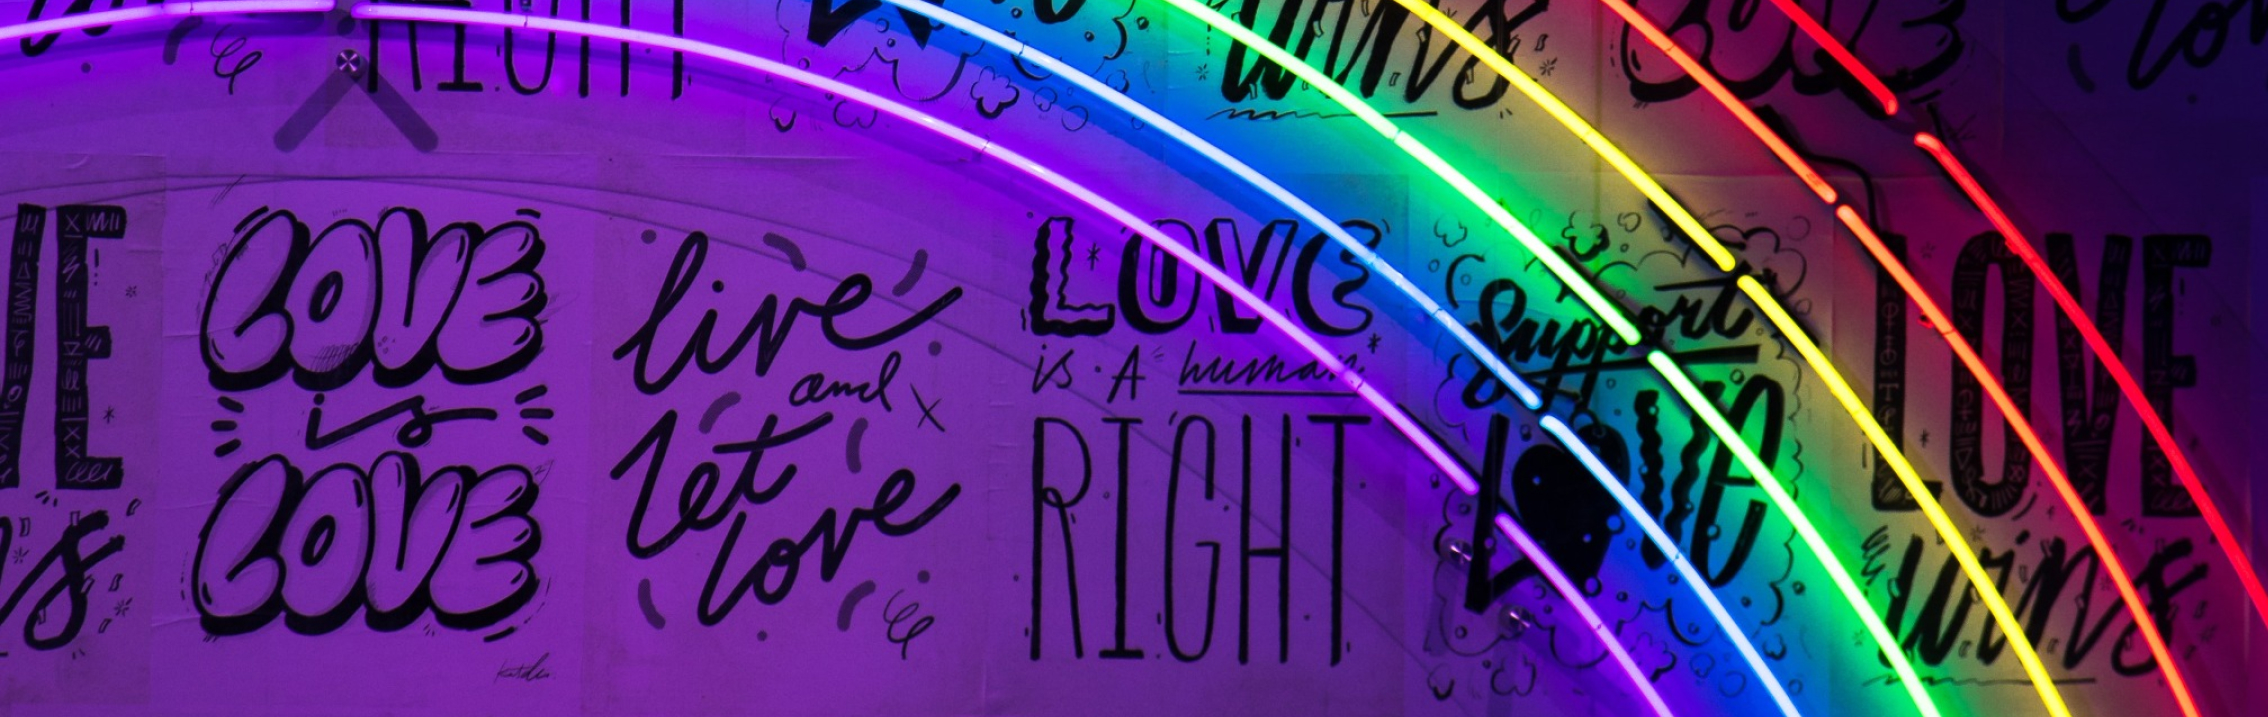 RIGHT
wins
LOVE
love
LOVE
is
LOVE
live
and
let
love
LOVE
is A human
RIGHT
Support
LOVE
LOVE
wins